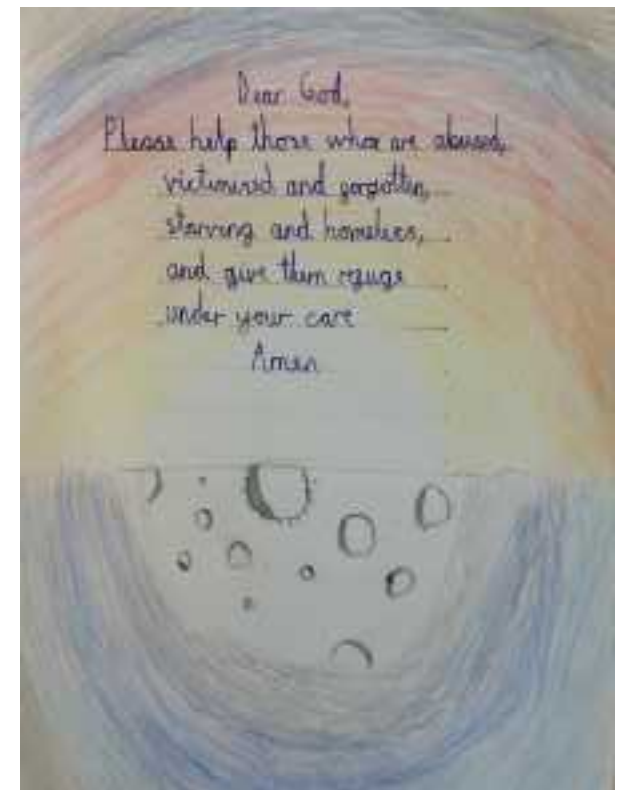 Dear God,
Please help those who are abused,
victimised and forgotten,
starving and homeless,
and give them refuge
under your care
Amen